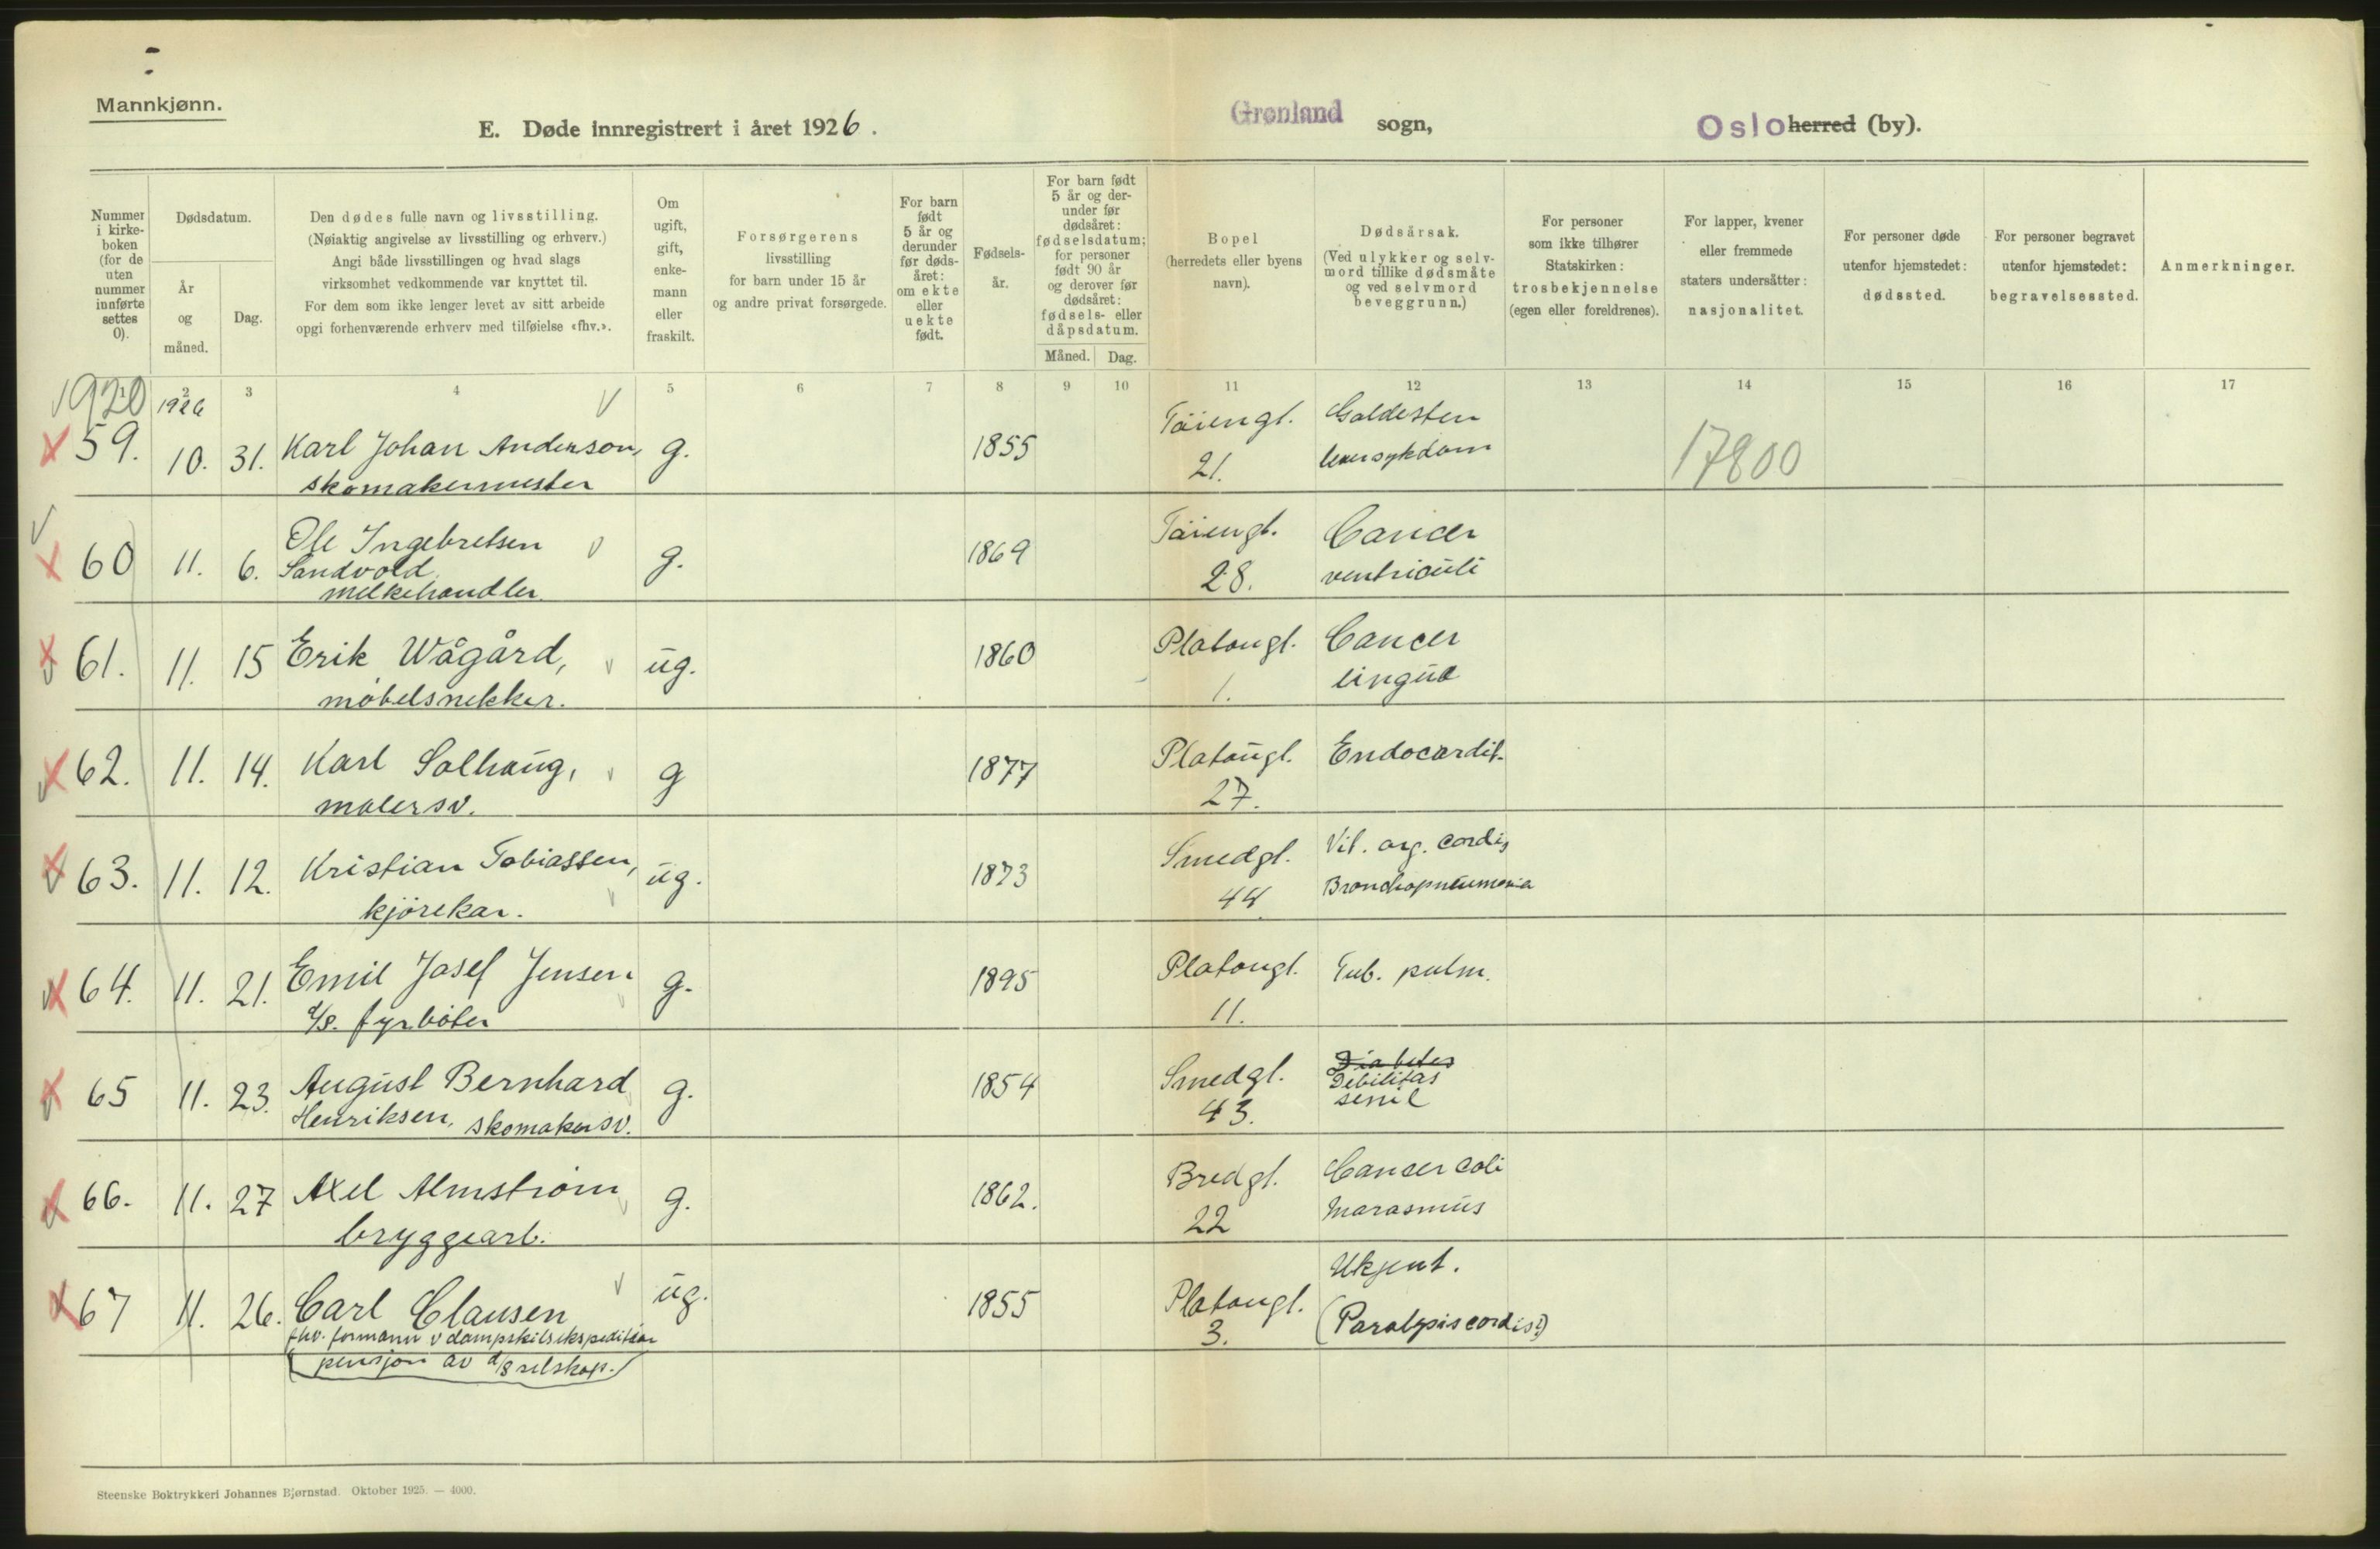 Mannkjønn.
E. Døde innregistrert i året 1926.
Grønland sogn,
Oslo herred (by).
Nummer i kirkeboken (for de uten nummer innførte settes 0).
Dødsdatum.
År og måned.
Dag.
Den dødes fulle navn og livsstilling.
(Nøiaktig angivelse av livsstilling og erhverv.)
Angi både livsstillingen og hvad slags
virksomhet vedkommende var knyttet til.
For dem som ikke lenger levet av sitt arbeide
opgi forhenværende erhverv med tilføielse «fhv.».
Om ugift, gift, enkemann eller fraskilt.
Forsørgerens
livsstilling
for barn under 15 år
og andre privat forsørgede.
For barn født 5 år og derunder før dødsåret: om ekte eller uekte født.
Fødselsår.
For barn født 5 år og derunder før dødsåret: fødselsdatum; for personer født 90 år og derover før dødsåret: fødsels- eller dåpsdatum.
Måned. Dag.
Bopel
(herredets eller byens
navn).
Dødsårsak.
(Ved ulykker og selvmord tillike dødsmåte og ved selvmord beveggrunn.)
For personer
som ikke tilhører
Statskirken:
trosbekjennelse
(egen eller foreldrenes).
For lapper, kvener
eller fremmede
staters undersåtter:
nasjonalitet.
For personer døde
utenfor hjemstedet:
dødssted.
For personer begravet
utenfor hjemstedet:
begravelsessted.
Anmerkninger.
1 2 3 4 5 6 7 8 9 10 11 12 13 14 15 16 17
1920 1926
59. 10. 31. Karl Johan Anderson, g. 1855 Tøiengt. Galdesten
skomakermester 21. leversykdom 17800
60 11. 6. Ole Ingebretsen g. 1869 Tøiengt. Cancer
Sandvold 28. ventriculi
melkehandler.
61. 11. 15 Erik Wågård, ug. 1860 Platougt. Cancer
møbelsnekker. 1. lingua
62. 11. 14. Karl Solhaug, g 1877 Platougt. Endocardit.
malersv. 27.
63. 11. 12. Kristian Tobiassen, ug. 1873 Smedgt. Vit. org. cordis
kjørekar. 44. Bronchopneumonia
64. 11. 21. Emil Josef Jensen g. 1895 Platougt. Tub. pulm.
d/s. fyrbøter 11.
65 11. 23. August Bernhard g. 1854 Smedgt. Diabetes
Henriksen, skomakersv. 43. Debilitas
senil
66. 11. 27 Axel Almstrøm g. 1862. Bredgt. Cancer coli
bryggearb. 22 Marasmus
67 11. 26. Carl Clausen ug. 1855 Platougt. Ukjent.
fhv. formann v dampskibsekspedition 3. (Paralysis cordis?)
pensjon av d/s selskap.
Steenske Boktrykkeri Johannes Bjørnstad. Oktober 1925. — 4000.